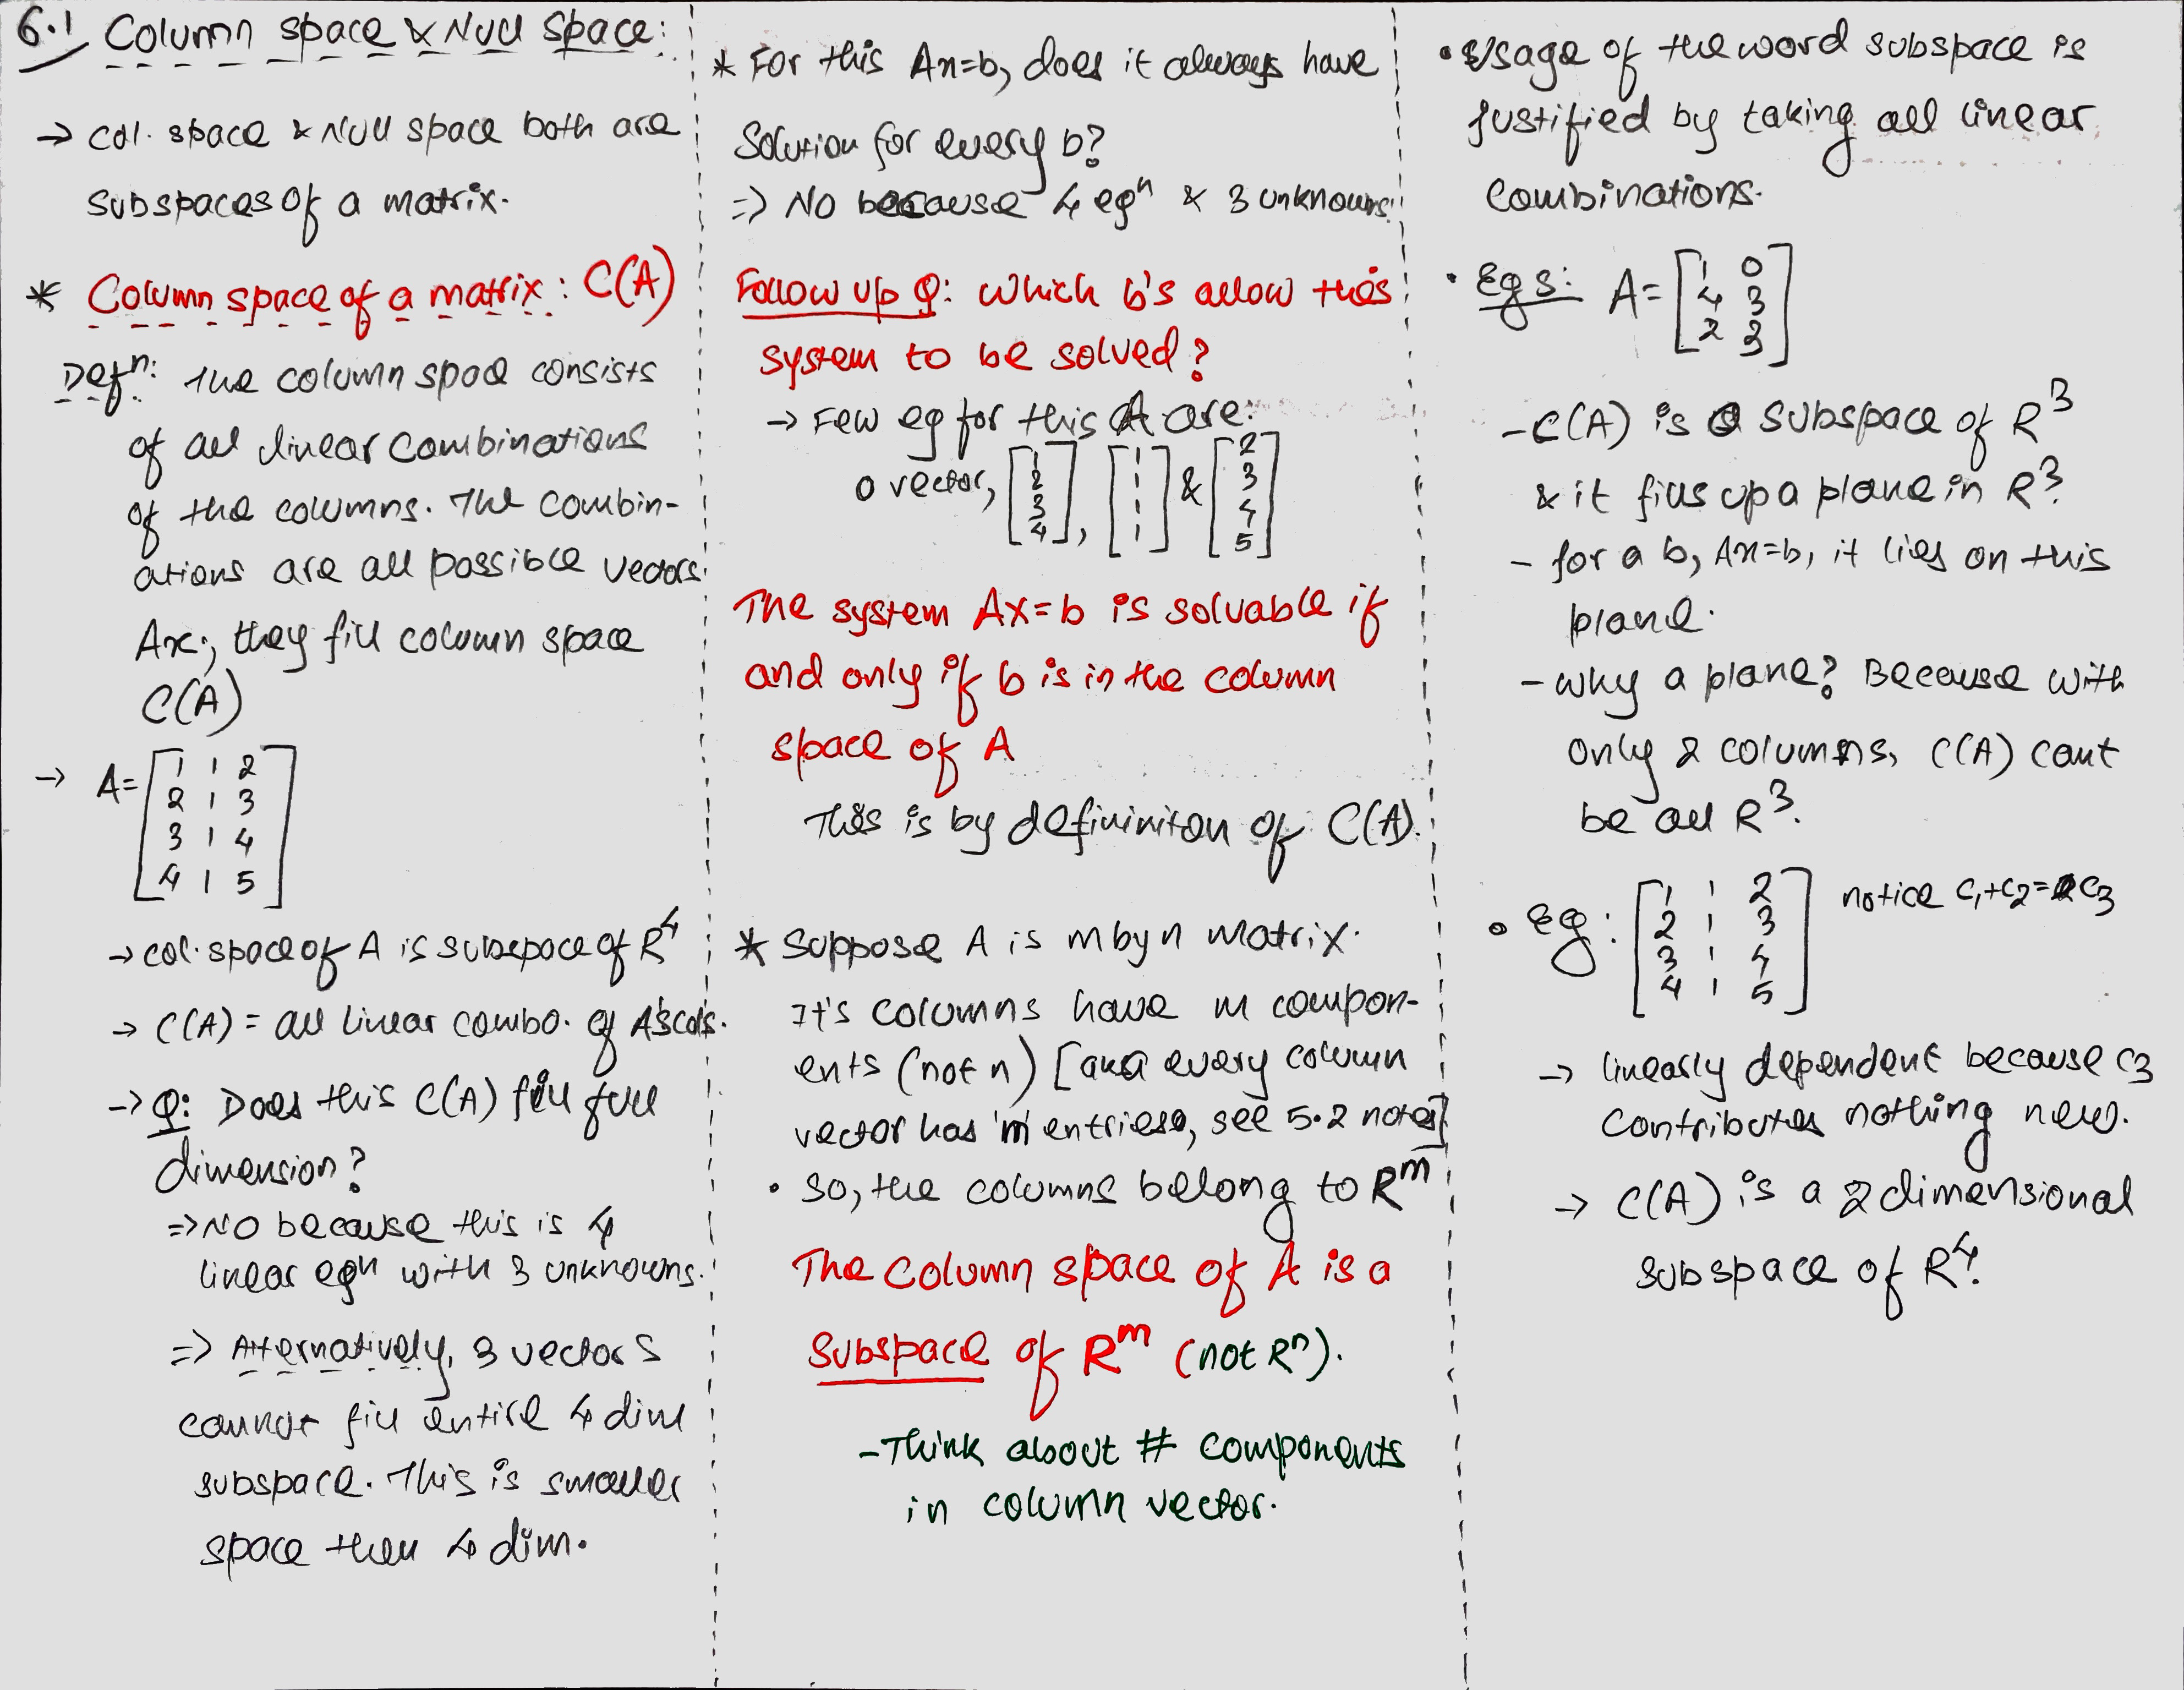 6.1 Column space & Null space:
→ col. space & Null space both are
subspaces of a matrix.
* Column space of a matrix: C(A)
Defn: The column spac consists
of all linear combinations
of the columns. The combin-
ations are all possible vectors
Ax; they fill column space
C(A)
→ A= [1 1 2
2 1 3
3 1 4
4 1 5]
→ col. space of A is subspace of R^4
→ C(A) = all linear combo. of A's cols.
→ Q: Does this C(A) fill full
dimension?
=> No because this is 4
linear eqn with 3 unknowns.
=> Alternatively, 3 vectors
cannot fill entire 4 dim
subspace. This is smaller
space then 4 dim.
* For this Ax=b, does it always have
Solution for every b?
=> No because 4 eqn & 3 unknowns
Follow up Q: Which b's allow this
system to be solved?
→ Few eg for this A are:
0 vector, [1 2 3 4], [1 1 1 1] & [2 3 4 5]
The system Ax=b is solvable if
and only if b is in the column
space of A
This is by defininiton of C(A).
* Suppose A is m by n matrix.
It's columns have m compon-
ents (not n) [aka every column
vector has 'm' entries, see 5.2 notes]
• So, the columns belong to R^m
The column space of A is a
subspace of R^m (not R^n).
- Think about # components
in column vector.
• Usage of the word subspace is
justified by taking all linear
combinations.
• Egs: A= [1 0
4 3
2 3]
- C(A) is a subspace of R^3
& it fills up a plane in R^3.
- for a b, Ax=b, it lies on this
plane.
- Why a plane? Because with
only 2 columns, C(A) cant
be all R^3.
• Eg: [1 1 2
2 1 3
3 1 4
4 1 5] notice c1+c2=c3
→ linearly dependent because c3
contributes nothing new.
→ C(A) is a 2 dimensional
subspace of R^4.